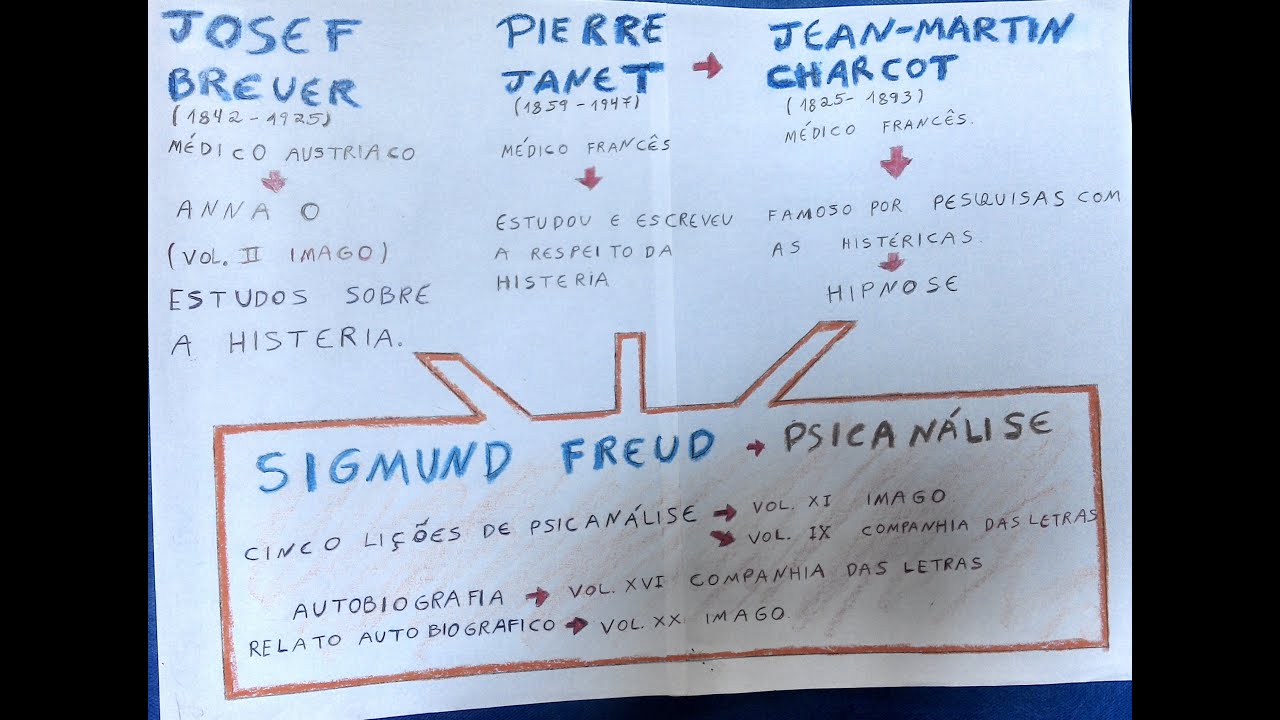 JOSEF
BREUER
(1842-1925)
MÉDICO AUSTRIACO
ANNA O
(VOL. II IMAGO)
ESTUDOS SOBRE
A HISTERIA.
PIERRE
JANET
(1859-1947)
MÉDICO FRANCÊS
ESTUDOU E ESCREVEU
A RESPEITO DA
HISTERIA
JEAN-MARTIN
CHARCOT
(1825-1893)
MÉDICO FRANCÊS.
FAMOSO POR PESQUISAS COM
AS HISTÉRICAS.
HIPNOSE
SIGMUND FREUD → PSICANÁLISE
CINCO LIÇÕES DE PSICANÁLISE → VOL. XI IMAGO
VOL. IX COMPANHIA DAS LETRAS
AUTOBIOGRAFIA → VOL. XVI COMPANHIA DAS LETRAS
RELATO AUTOBIOGRAFICO → VOL. XX IMAGO.